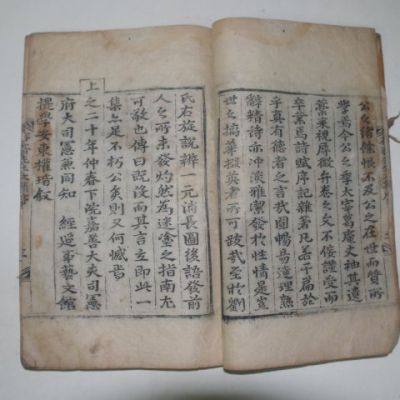 公之緖餘恨不及公之在世而質所
學焉今公之季太宰葛庵丈袖其遺
藁來視厚徵弁卷之文不佞謹受而
卒業焉詩賦序記雜著凡若干篇於
乎眞有德者之言哉圓暢易達理熟
辭精詩亦冲淡雅潔發於性情是豈
世之摛華掇英者所可跂哉至於劉
氏右旋說辨一元消長圖後語發前
人之所未發灼然爲迷塗之指南尤
可敬也傳曰旣沒而其言立卽此一
集亦足不朽公矣則又何憾焉
上之二十年仲春下浣嘉善大夫司憲
府大司憲兼同知 經筵事藝文館
提學安東權瑎叙